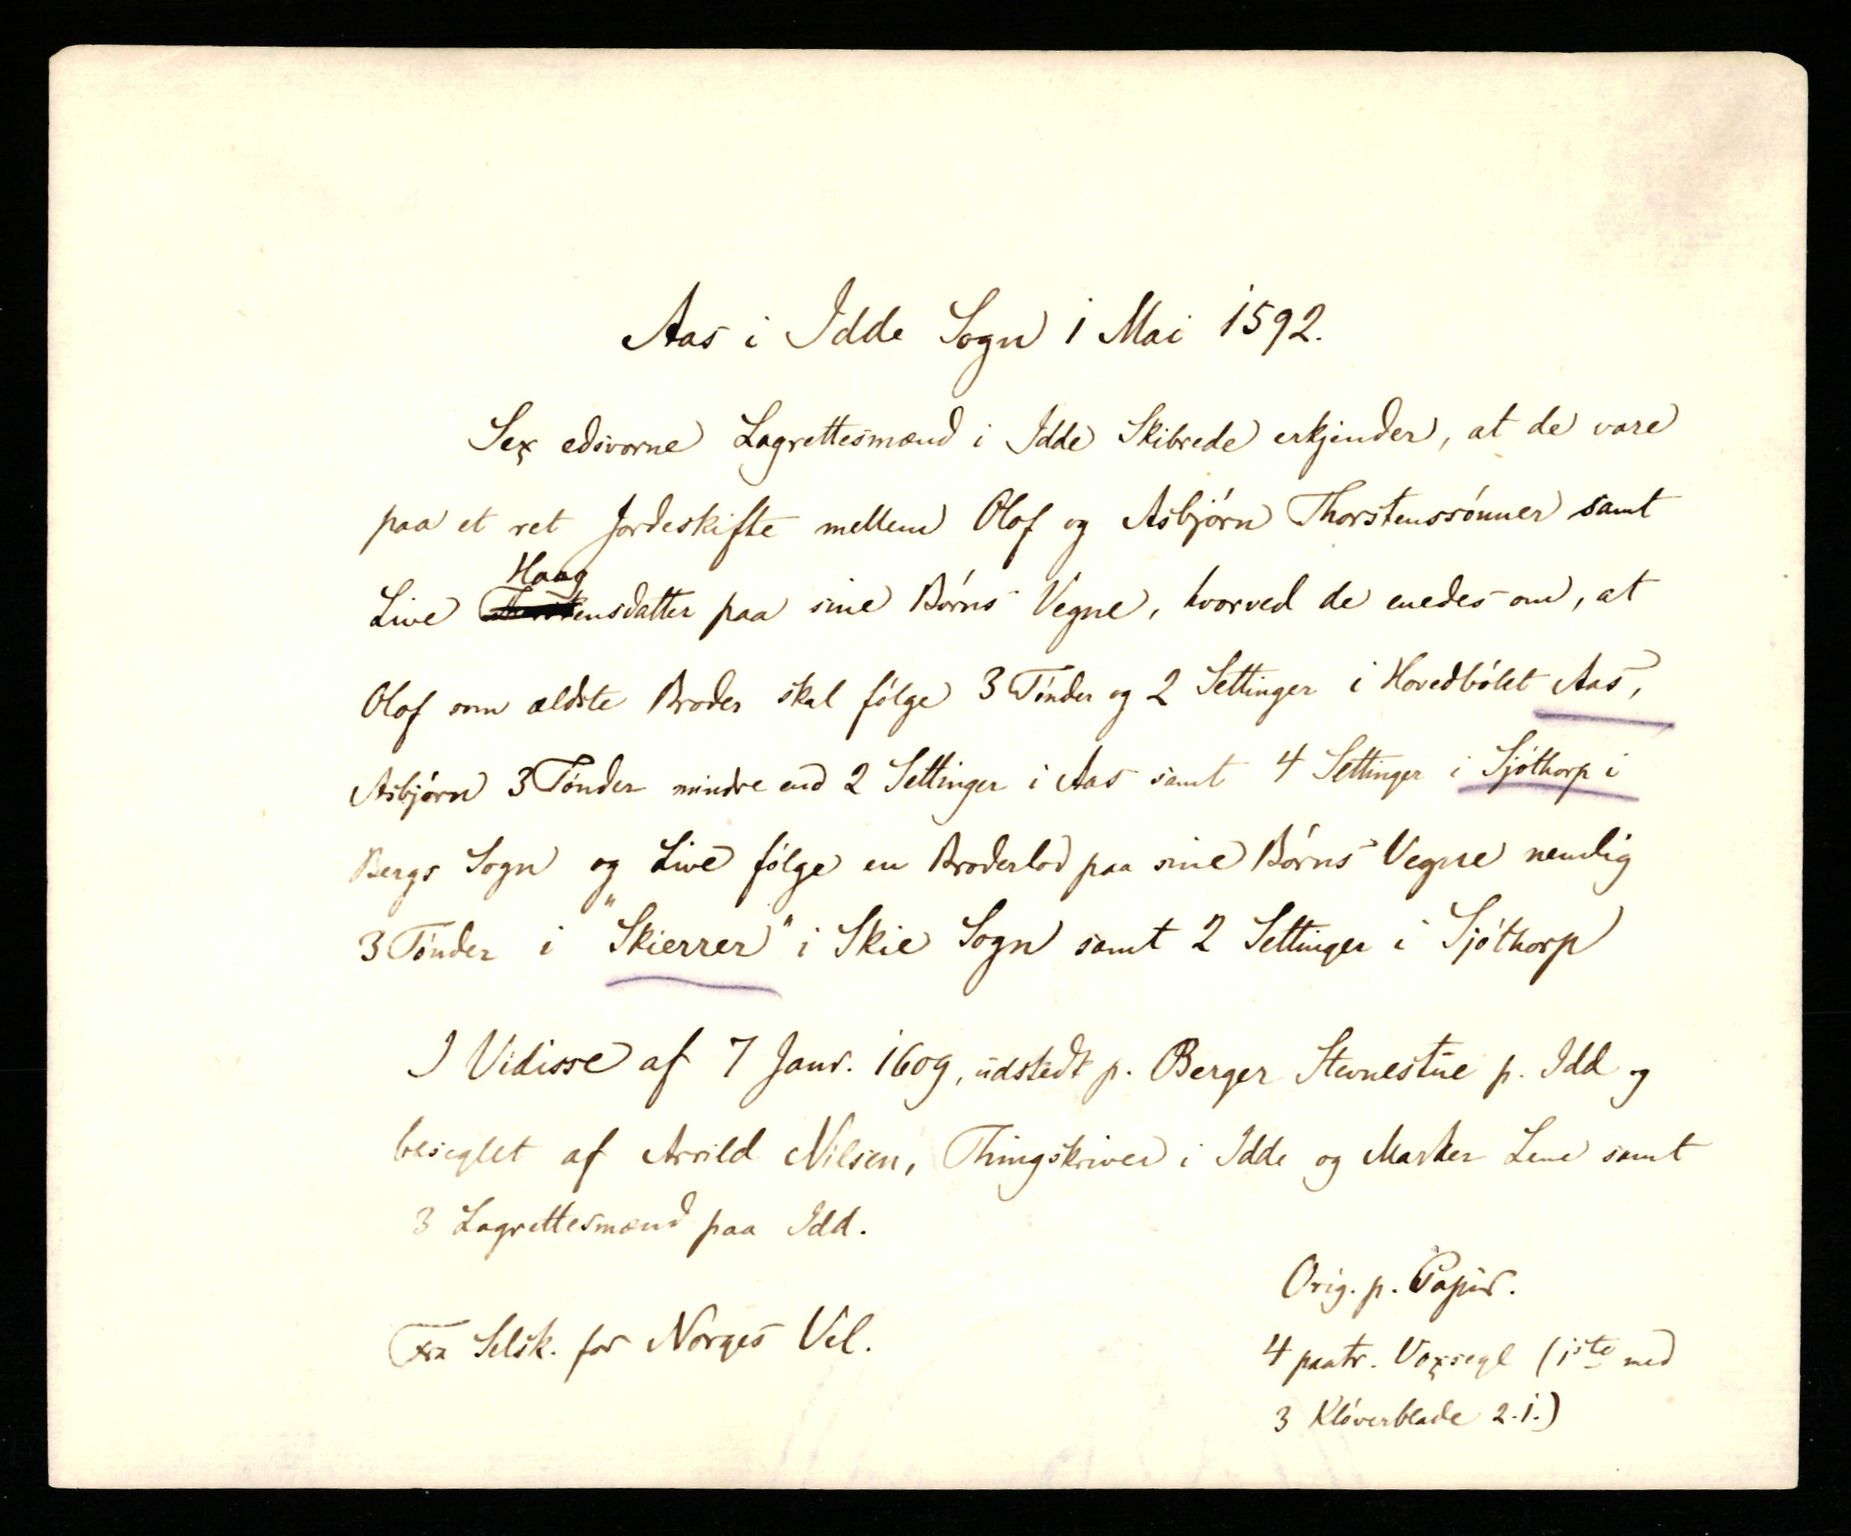 Aas i Idde Sogn 1 Mai 1592.
Sex edsvorne Lagrettesmænd i Idde Skibrede erkjender, at de vare
paa et ret Jordeskifte mellem Olof og Asbjørn Thorstenssønner samt
Haag
Live Thorstensdatter paa sine Børns Vegne, hvorved de enedes om, at
Olof som ældste Broder skal følge 3 Tønder og 2 Settinger i Hovedbølet Aas,
Asbjørn 3 Tønder mindre end 2 Settinger i Aas samt 4 Settinger i Sjøthorp i
Bergs Sogn og Live følge en Broderlod paa sine Børns Vegne nemlig
3 Tønder i "Skierrer" i Skie Sogn samt 2 Settinger i Sjøthorp
I Vidisse af 7 Janr. 1609, udstedt p. Berger Stevnestue p. Idd og
beseglet af Arvild Nilsen, Thingskriver i Idde og Marker Lene samt
3 Lagrettesmænd paa Idd.
Orig. p. Papir.
Fra Selsk. for Norges Vel.
4 paatr. Voxsegl (1ste med
3 Kløverblade 2.1.)